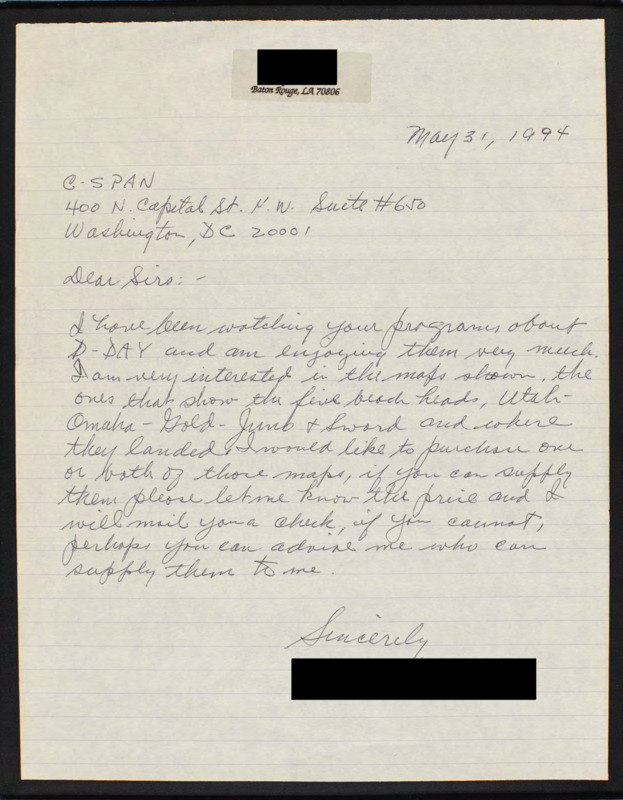 Baton Rouge, LA 70806
May 31, 1994
C-SPAN
400 N. Capital St. N.W. Suite #650
Washington, DC 20001
Dear Sirs: -
I have been watching your programs about
D-DAY and am enjoying them very much.
I am very interested in the maps shown, the
ones that show the five beach heads, Utah-
Omaha - Gold - Juno & Sword and where
they landed. I would like to purchase one
or both of those maps, if you can supply
them please let me know the price and I
will mail you a check, if you cannot,
perhaps you can advise me who can
supply them to me.
Sincerely